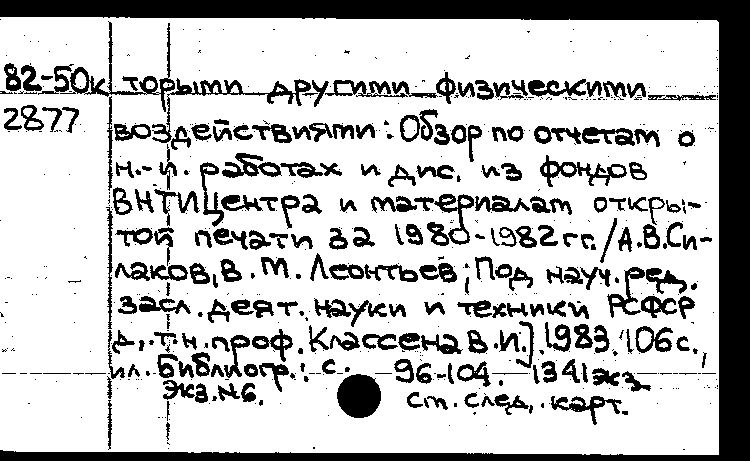 82-50к торыми другими физическими
2877
воздействиями: Обзор по отчетам о
н.-и. работах и дис. из фондов
ВНТИЦентра и материалам откры-
той печати за 1980-1982гг./А.В.Си-
лаков, В.М. Леонтьев; Под науч. ред.
засл. деят. науки и техники РСФСР
д.т.н. проф. Классена В.И.]. 1983. 106с.,
ил. Библиогр.: с. 96-104. 1341экз.
Экз.№6. ст. след. карт.